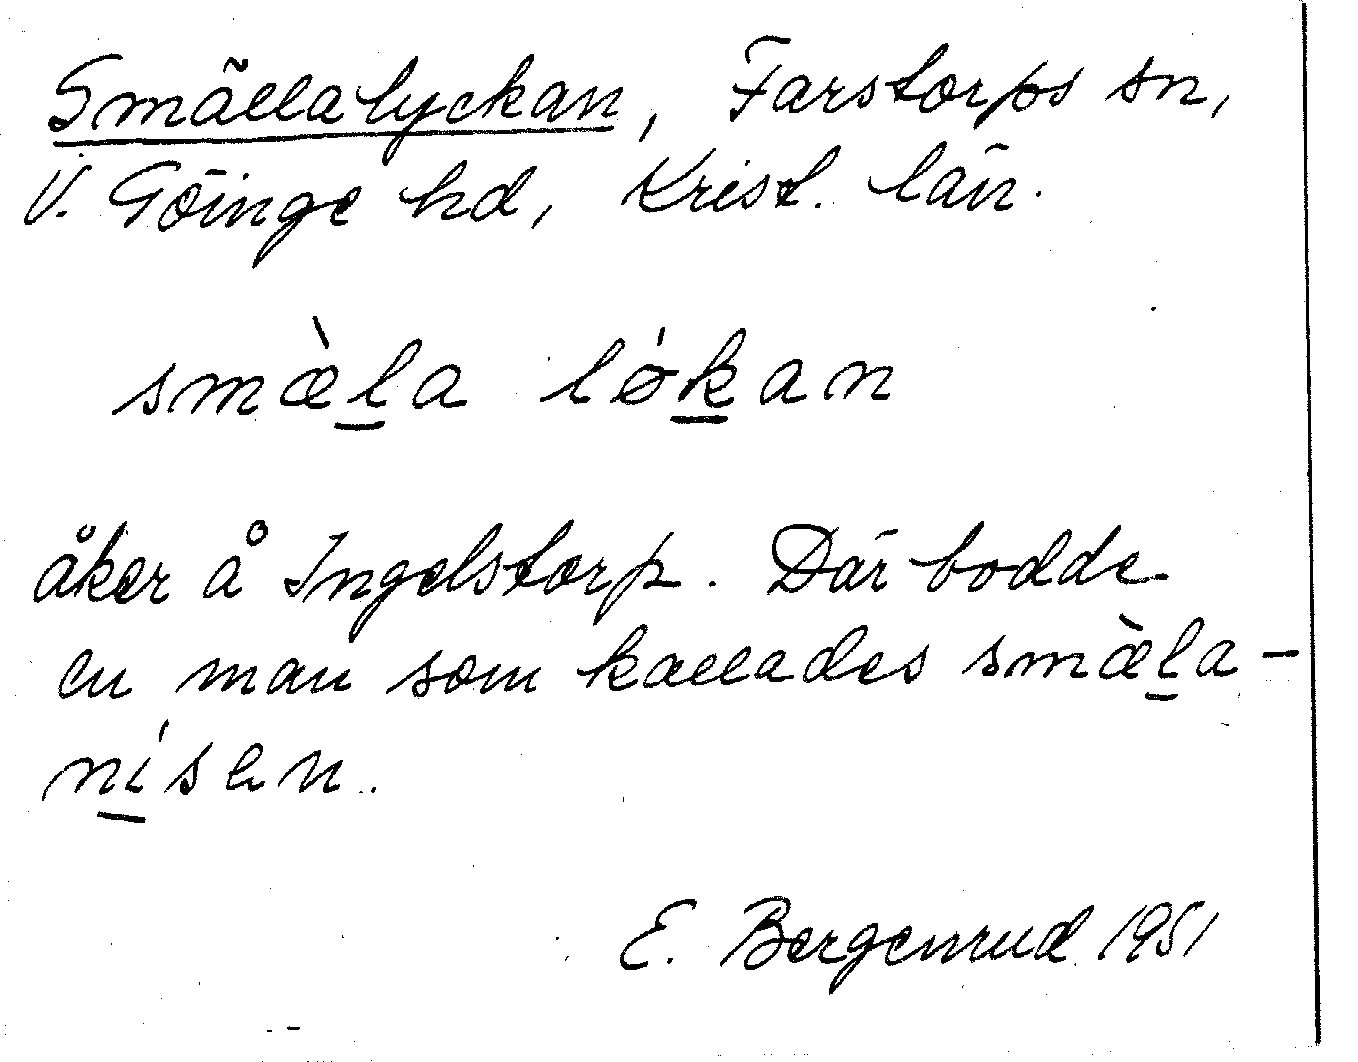 Smällalyckan, Farstorps sn,
V. Göinge hd, Krist. län.
smæ̀l̲a lǿk̲an
åker å Ingelstorp. Där bodde
en man som kallades smæ̀l̲a-
ní̲sen.
E. Bergenrud 1951